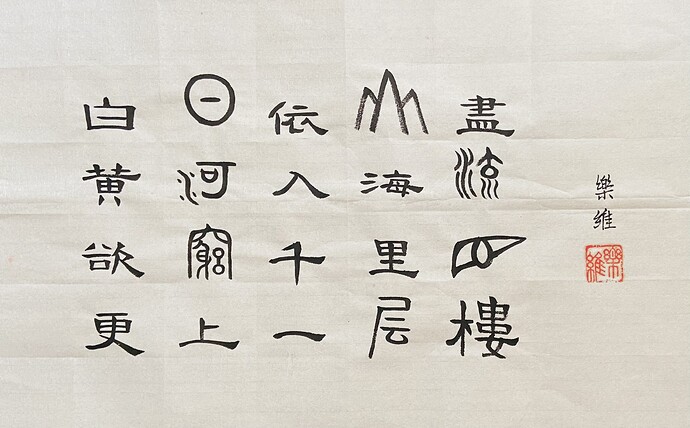 白日依山盡
黄河入海流
欲窮千里目
更上一层樓
樂維
樂維